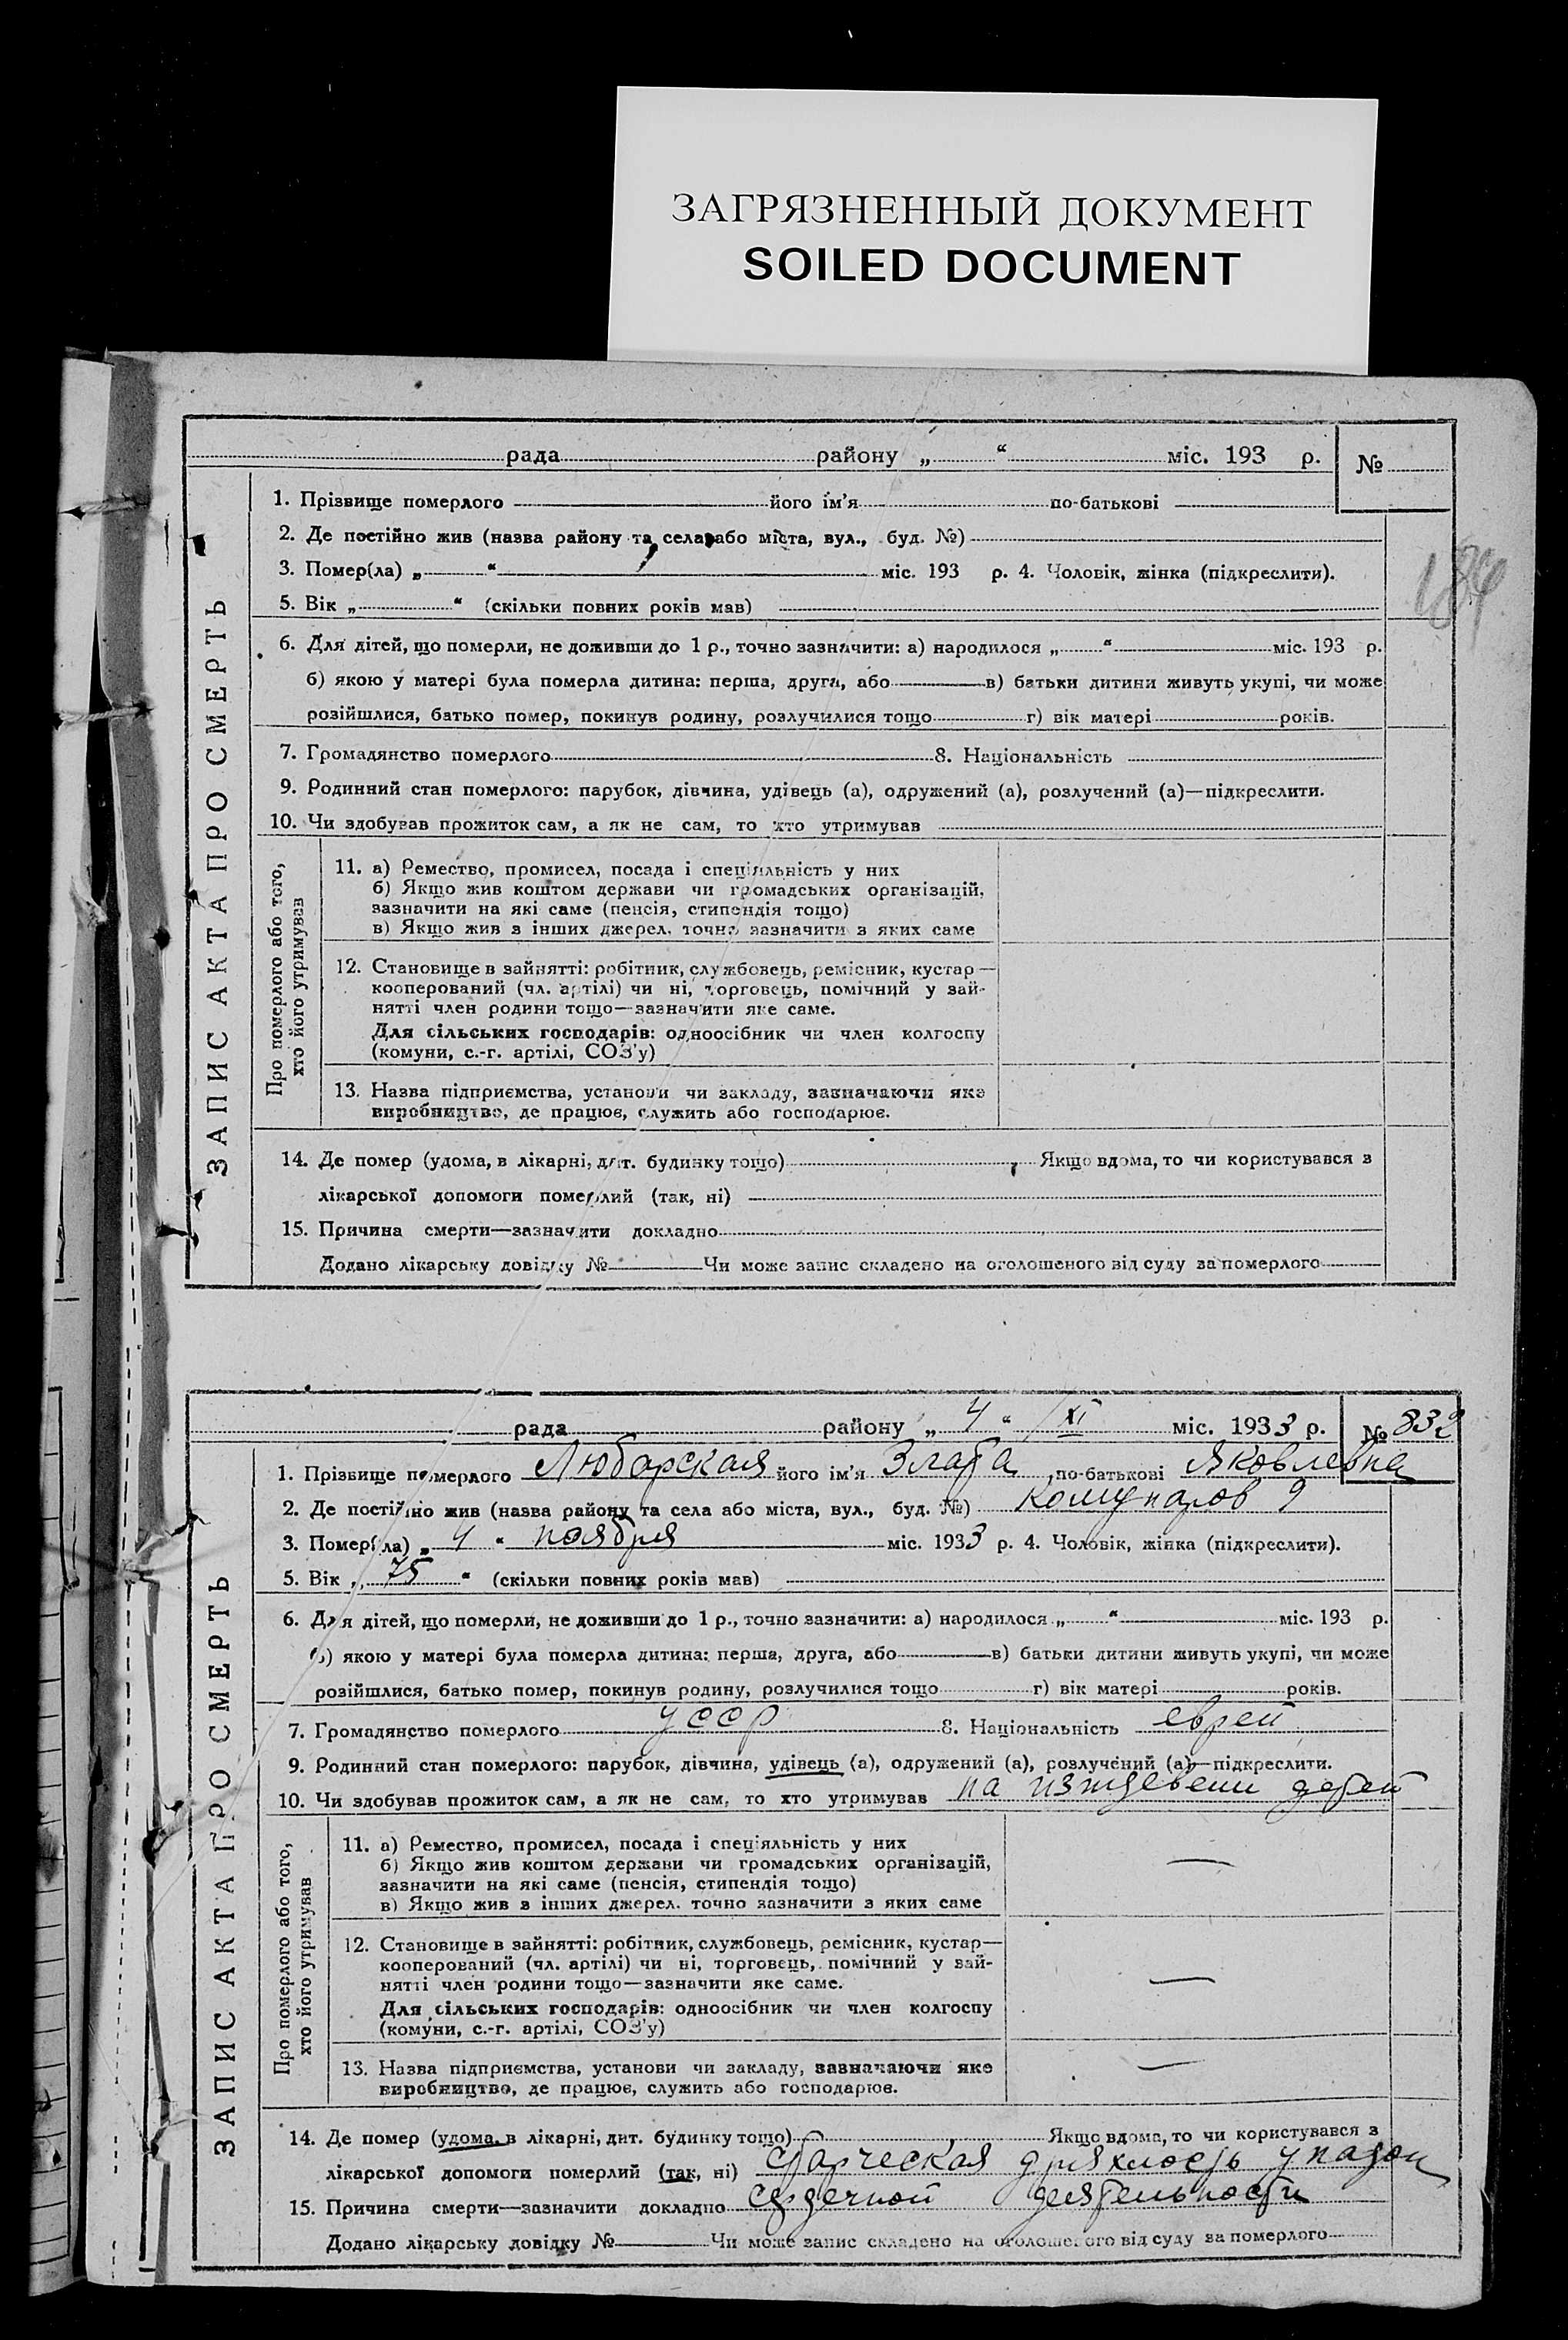 ЗАГРЯЗНЕННЫЙ ДОКУМЕНТ
SOILED DOCUMENT
184
ЗАПИС АКТА ПРО СМЕРТЬ
рада району „ “ міс. 193 р. №
1. Прізвище померлого його ім'я по-батькові
2. Де постійно жив (назва району та села або міста, вул., буд. №)
3. Помер(ла) „ “ міс. 193 р. 4. Чоловік, жінка (підкреслити).
5. Вік „ “ (скільки повних років мав)
6. Для дітей, що померли, не доживши до 1 р., точно зазначити: а) народилося „ “ міс. 193 р.
б) якою у матері була померла дитина: перша, друга, або в) батьки дитини живуть укупі, чи може
розійшлися, батько помер, покинув родину, розлучилися тощо г) вік матері років.
7. Громадянство померлого 8. Національність
9. Родинний стан померлого: парубок, дівчина, удівець (а), одружений (а), розлучений (а)—підкреслити.
10. Чи здобував прожиток сам, а як не сам, то хто утримував
Про померлого або того,
хто його утримував
11. а) Ремество, промисел, посада і спеціяльність у них
б) Якщо жив коштом держави чи громадських організацій,
зазначити на які саме (пенсія, стипендія тощо)
в) Якщо жив з інших джерел, точно зазначити з яких саме
12. Становище в зайнятті: робітник, службовець, ремісник, кустар—
кооперований (чл. артілі) чи ні, торговець, помічний у зай-
нятті член родини тощо—зазначити яке саме.
Для сільських господарів: одноосібник чи член колгоспу
(комуни, с.-г. артілі, СОЗ'у)
13. Назва підприємства, установи чи закладу, зазначаючи яке
виробництво, де працює, служить або господарює.
14. Де помер (удома, в лікарні, дит. будинку тощо) Якщо вдома, то чи користувався з
лікарської допомоги померлий (так, ні)
15. Причина смерти—зазначити докладно
Додано лікарську довідку № Чи може запис складено на оголошеного від суду за померлого
ЗАПИС АКТА ПРО СМЕРТЬ
рада району „ 4 “ XI міс. 1933 р. № 832
1. Прізвище померлого Любарская його ім'я Злата по-батькові Яковлевна
2. Де постійно жив (назва району та села або міста, вул., буд. №) Комунаров 9
3. Помер(ла) „ 4 “ ноября міс. 1933 р. 4. Чоловік, жінка (підкреслити).
5. Вік „ 75 “ (скільки повних років мав)
6. Для дітей, що померли, не доживши до 1 р., точно зазначити: а) народилося „ “ міс. 193 р.
б) якою у матері була померла дитина: перша, друга, або в) батьки дитини живуть укупі, чи може
розійшлися, батько помер, покинув родину, розлучилися тощо г) вік матері років.
7. Громадянство померлого УССР 8. Національність еврей
9. Родинний стан померлого: парубок, дівчина, удівець (а), одружений (а), розлучений (а)—підкреслити.
10. Чи здобував прожиток сам, а як не сам, то хто утримував на иждевени детей
Про померлого або того,
хто його утримував
11. а) Ремество, промисел, посада і спеціяльність у них
б) Якщо жив коштом держави чи громадських організацій, —
зазначити на які саме (пенсія, стипендія тощо)
в) Якщо жив з інших джерел, точно зазначити з яких саме
12. Становище в зайнятті: робітник, службовець, ремісник, кустар—
кооперований (чл. артілі) чи ні, торговець, помічний у зай-
нятті член родини тощо—зазначити яке саме. —
Для сільських господарів: одноосібник чи член колгоспу
(комуни, с.-г. артілі, СОЗ'у)
13. Назва підприємства, установи чи закладу, зазначаючи яке —
виробництво, де працює, служить або господарює.
14. Де помер (удома, в лікарні, дит. будинку тощо) Якщо вдома, то чи користувався з
лікарської допомоги померлий (так, ні) старческая дряхлость упадок
15. Причина смерти—зазначити докладно сердечной деятельности
Додано лікарську довідку № Чи може запис складено на оголошеного від суду за померлого